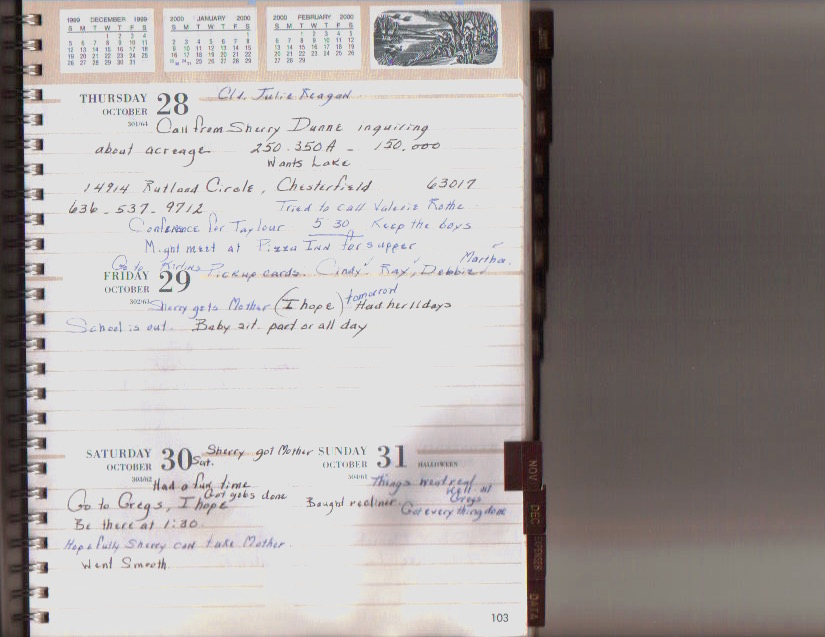 1999 DECEMBER 1999
S M T W T F S
1 2 3 4
5 6 7 8 9 10 11
12 13 14 15 16 17 18
19 20 21 22 23 24 25
26 27 28 29 30 31
2000 JANUARY 2000
S M T W T F S
1
2 3 4 5 6 7 8
9 10 11 12 13 14 15
16 17 18 19 20 21 22
23 30 24 31 25 26 27 28 29
2000 FEBRUARY 2000
S M T W T F S
1 2 3 4 5
6 7 8 9 10 11 12
13 14 15 16 17 18 19
20 21 22 23 24 25 26
27 28 29
THURSDAY 28 Cld. Julie Reagan
OCTOBER
301/64
Call from Sherry Dunne inquiring
about acreage 250-350A - 150,000
Wants Lake
14914 Rutland Circle, Chesterfield 63017
636-537-9712 Tried to call Valerie Rothe
Conference for Taylour 5 30 Keep the boys
Might meet at Pizza Inn for supper
Go to Pickup cards. Cindy Ray, Debbie Martha
FRIDAY 29
OCTOBER
302/63
Sherry gets Mother (I hope) tomorrow Had her 11 days
School is out. Baby sit part or all day
SATURDAY 30 Sat. Sherry got Mother
OCTOBER
303/62
Had a fun time
Got gobs done
Go to Gregs, I hope
Be there at 1:30
Hopefully Sherry can take Mother
Went Smooth
SUNDAY 31
OCTOBER HALLOWEEN
304/61
Things went real
well at
Gregs
Bought recliner Got everything done
103
NOV
DEC
EXPENSES
DATA